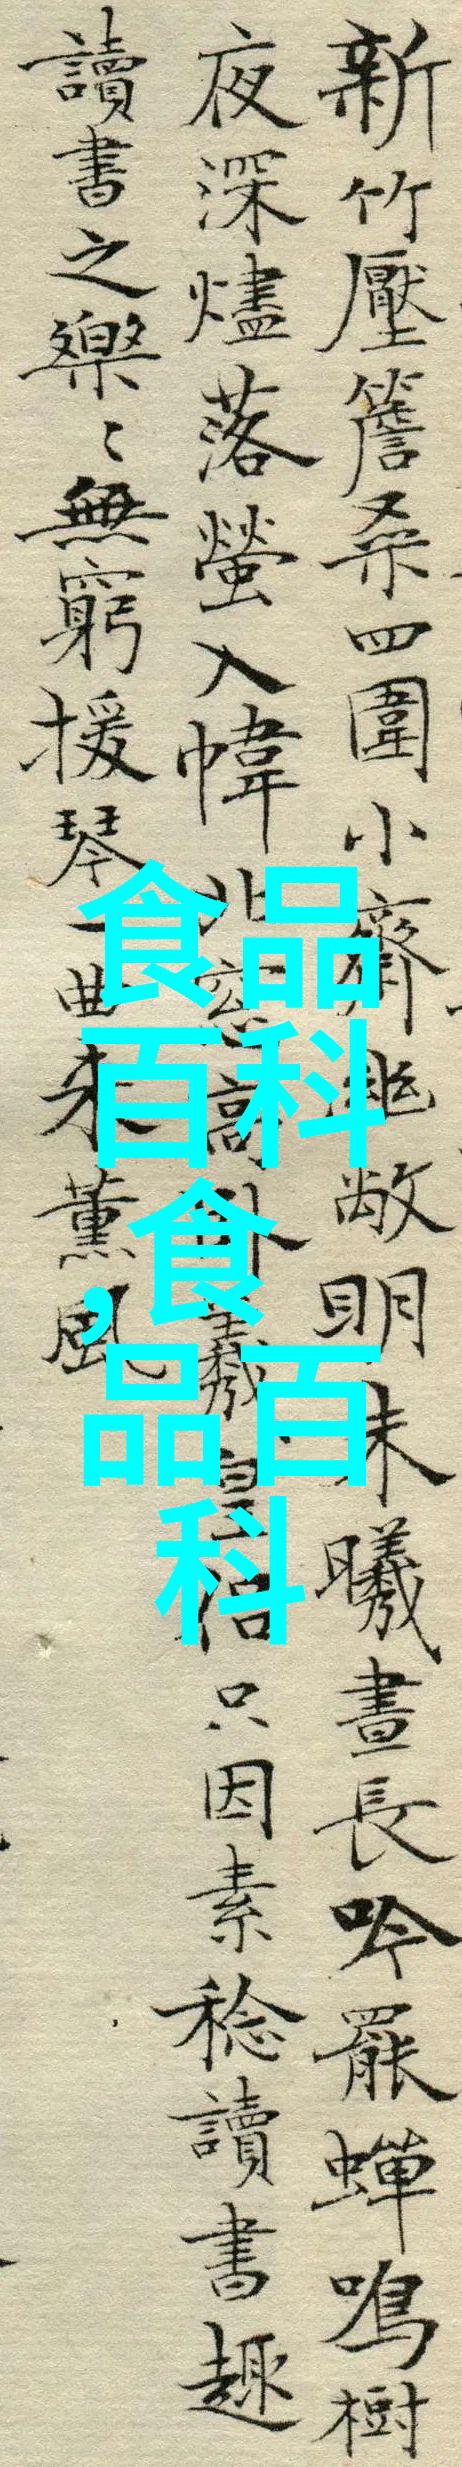 新竹壓簷桑四圍小齋幽敞明朱曦晝長吟罷蟬鳴樹
夜深燼落螢入幃北窓高臥羲皇侶只因素稔讀書趣
讀書之樂〻無窮援琴一曲來薰風
食品
百科
,食
品百
科